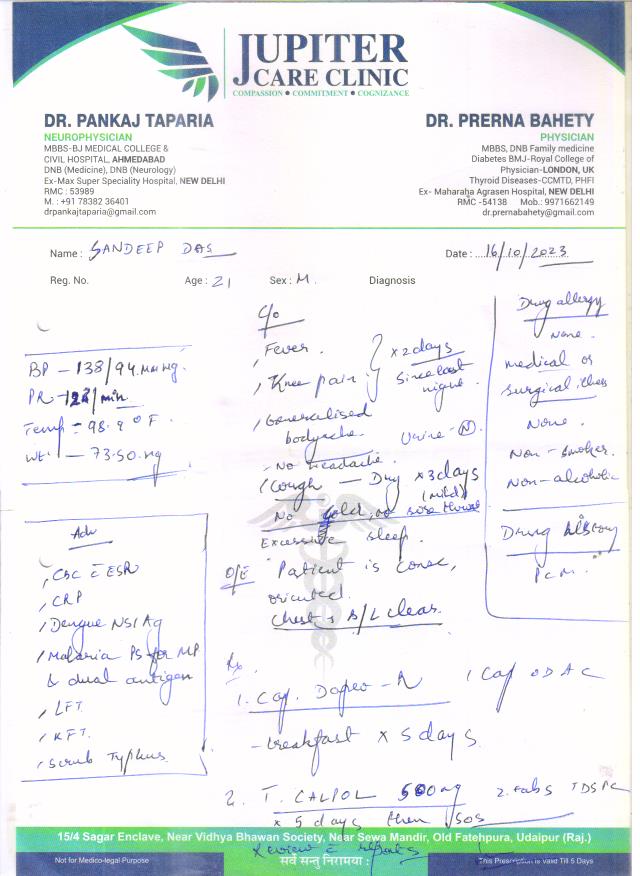 JUPITER
CARE CLINIC
COMPASSION • COMMITMENT • COGNIZANCE
DR. PANKAJ TAPARIA
NEUROPHYSICIAN
MBBS-BJ MEDICAL COLLEGE &
CIVIL HOSPITAL, AHMEDABAD
DNB (Medicine), DNB (Neurology)
Ex-Max Super Speciality Hospital, NEW DELHI
RMC : 53989
M. : +91 78382 36401
drpankajtaparia@gmail.com
DR. PRERNA BAHETY
PHYSICIAN
MBBS, DNB Family medicine
Diabetes BMJ-Royal College of
Physician-LONDON, UK
Thyroid Diseases-CCMTD, PHFI
Ex- Maharaha Agrasen Hospital, NEW DELHI
RMC -54138 Mob.: 9971662149
dr.prernabahety@gmail.com
Name : SANDEEP DAS
Date : 16/10/2023
Reg. No. Age : 21 Sex : M. Diagnosis
BP - 138/94 mm Hg.
PR - 122/min
Temp = 98.9 °F
Wt. - 73.50 kg
Adv
CBC c ESR
CRP
Dengue NS1 Ag
Malaria PS for MP
& dual antigen
LFT
KFT
Scrub Typhus
C/o
Fever.
Knee pain
x 2 days
Since last
night.
Generalised
bodyache.
Urine - N
- No headache.
Cough - Dry x 3 days
(mild)
No cold, no sore throat
Excessive sleep.
O/E Patient is consc,
oriented.
Chest B/L clear.
Drug allergy
None.
medical or
surgical illness
None.
Non-smoker.
Non-alcoholic
Drug history
PCM.
Rx
1. Cap. 1 Cap OD AC
- breakfast x 5 days
2. T. CALPOL 500 mg 2 tabs TDS PC
x 5 days then SOS
15/4 Sagar Enclave, Near Vidhya Bhawan Society, Near Sewa Mandir, Old Fatehpura, Udaipur (Raj.)
Review c reports
Not for Medico-legal Purpose
सर्वे सन्तु निरामया :
This Prescription is Valid Till 5 Days